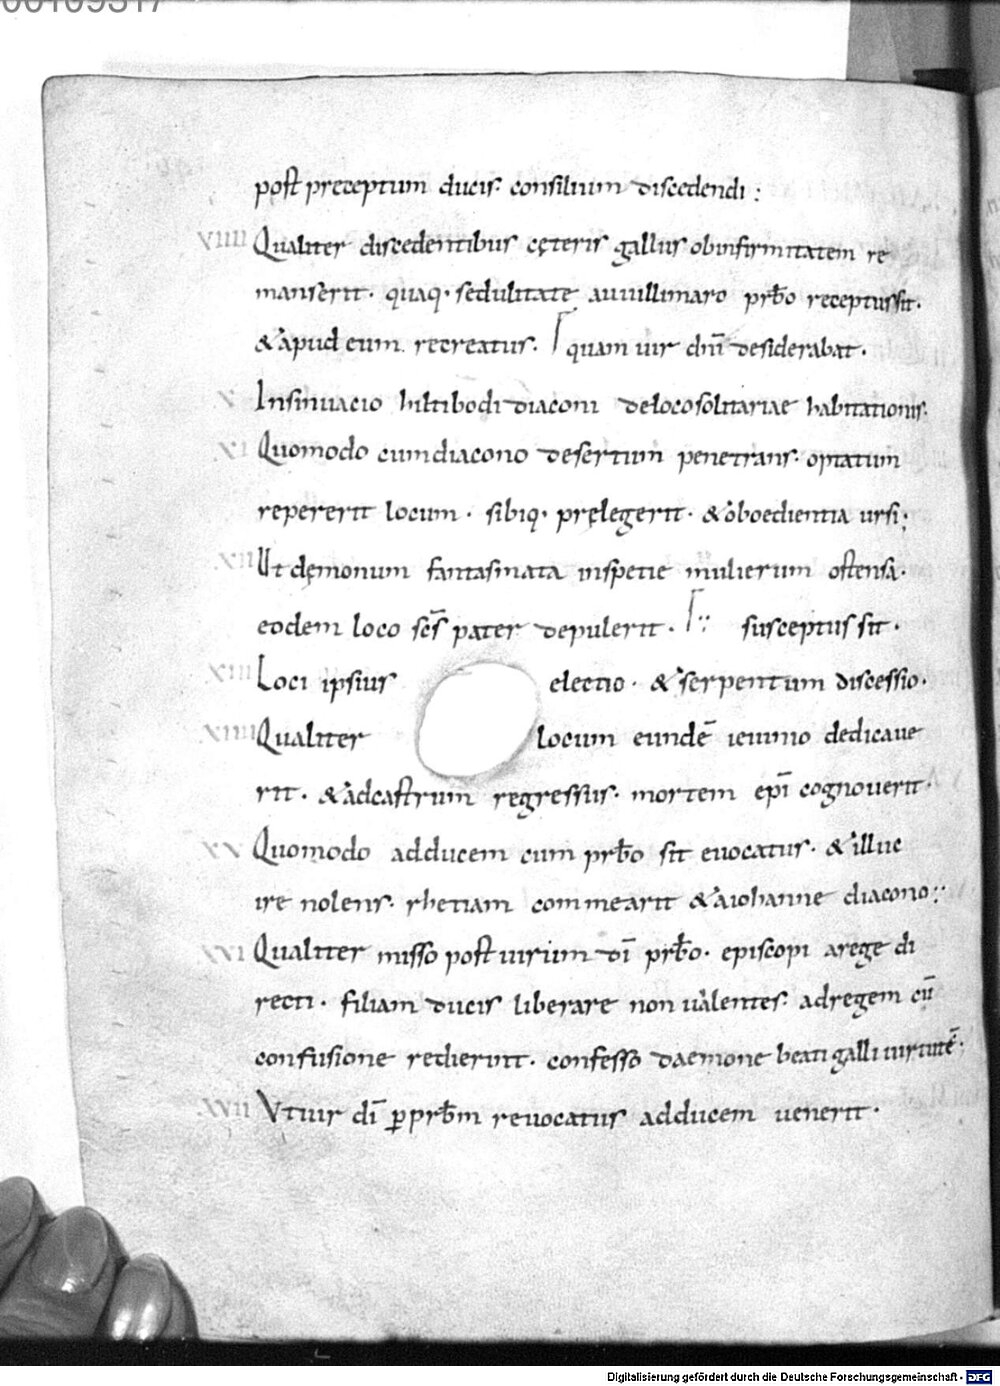 00109317
post preceptum ducis· consilium discedendi:
VIIII Qualiter discedentibus cęteris gallus obinfirmitatem re
manserit· quaq· sedulitate auuillimaro prb̄o receptus sit·
& apud eum recreatus· quam uir dnī desiderabat·
X Insinuacio hiltibodi diaconi de loco solitariae habitationis·
XI Quomodo cum diacono desertum penetrans· optatum
repererit locum· sibiq· pręlegerit· & oboedientia ursi;
XII Ut dęmonum fantasmata inspetie mulierum ostensa·
eodem loco scs̄ pater depulerit· susceptus sit·
XIII Loci ipsius electio· & serpentum discessio·
XIIII Qualiter locum eundē ieiunio dedicaue
rit· & ad castrum regressus· mortem epī cognouerit·
XV Quomodo ad ducem cum prb̄o sit euocatus· & illuc
ire nolens· rhetiam commearit & a iohanne diacono:
XVI Qualiter misso post uirum dī prb̄o· episcopi a rege di
recti· filiam ducis liberare non ualentes· ad regem cū
confusione redierint· confesso daemone beati galli uirtutē;
XVII Vt uir dī p̱ prb̄m reuocatus ad ducem uenerit·
Digitalisierung gefördert durch die Deutsche Forschungsgemeinschaft - DFG